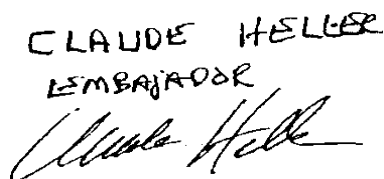 CLAUDE HELLER
EMBAJADOR
Claude Heller